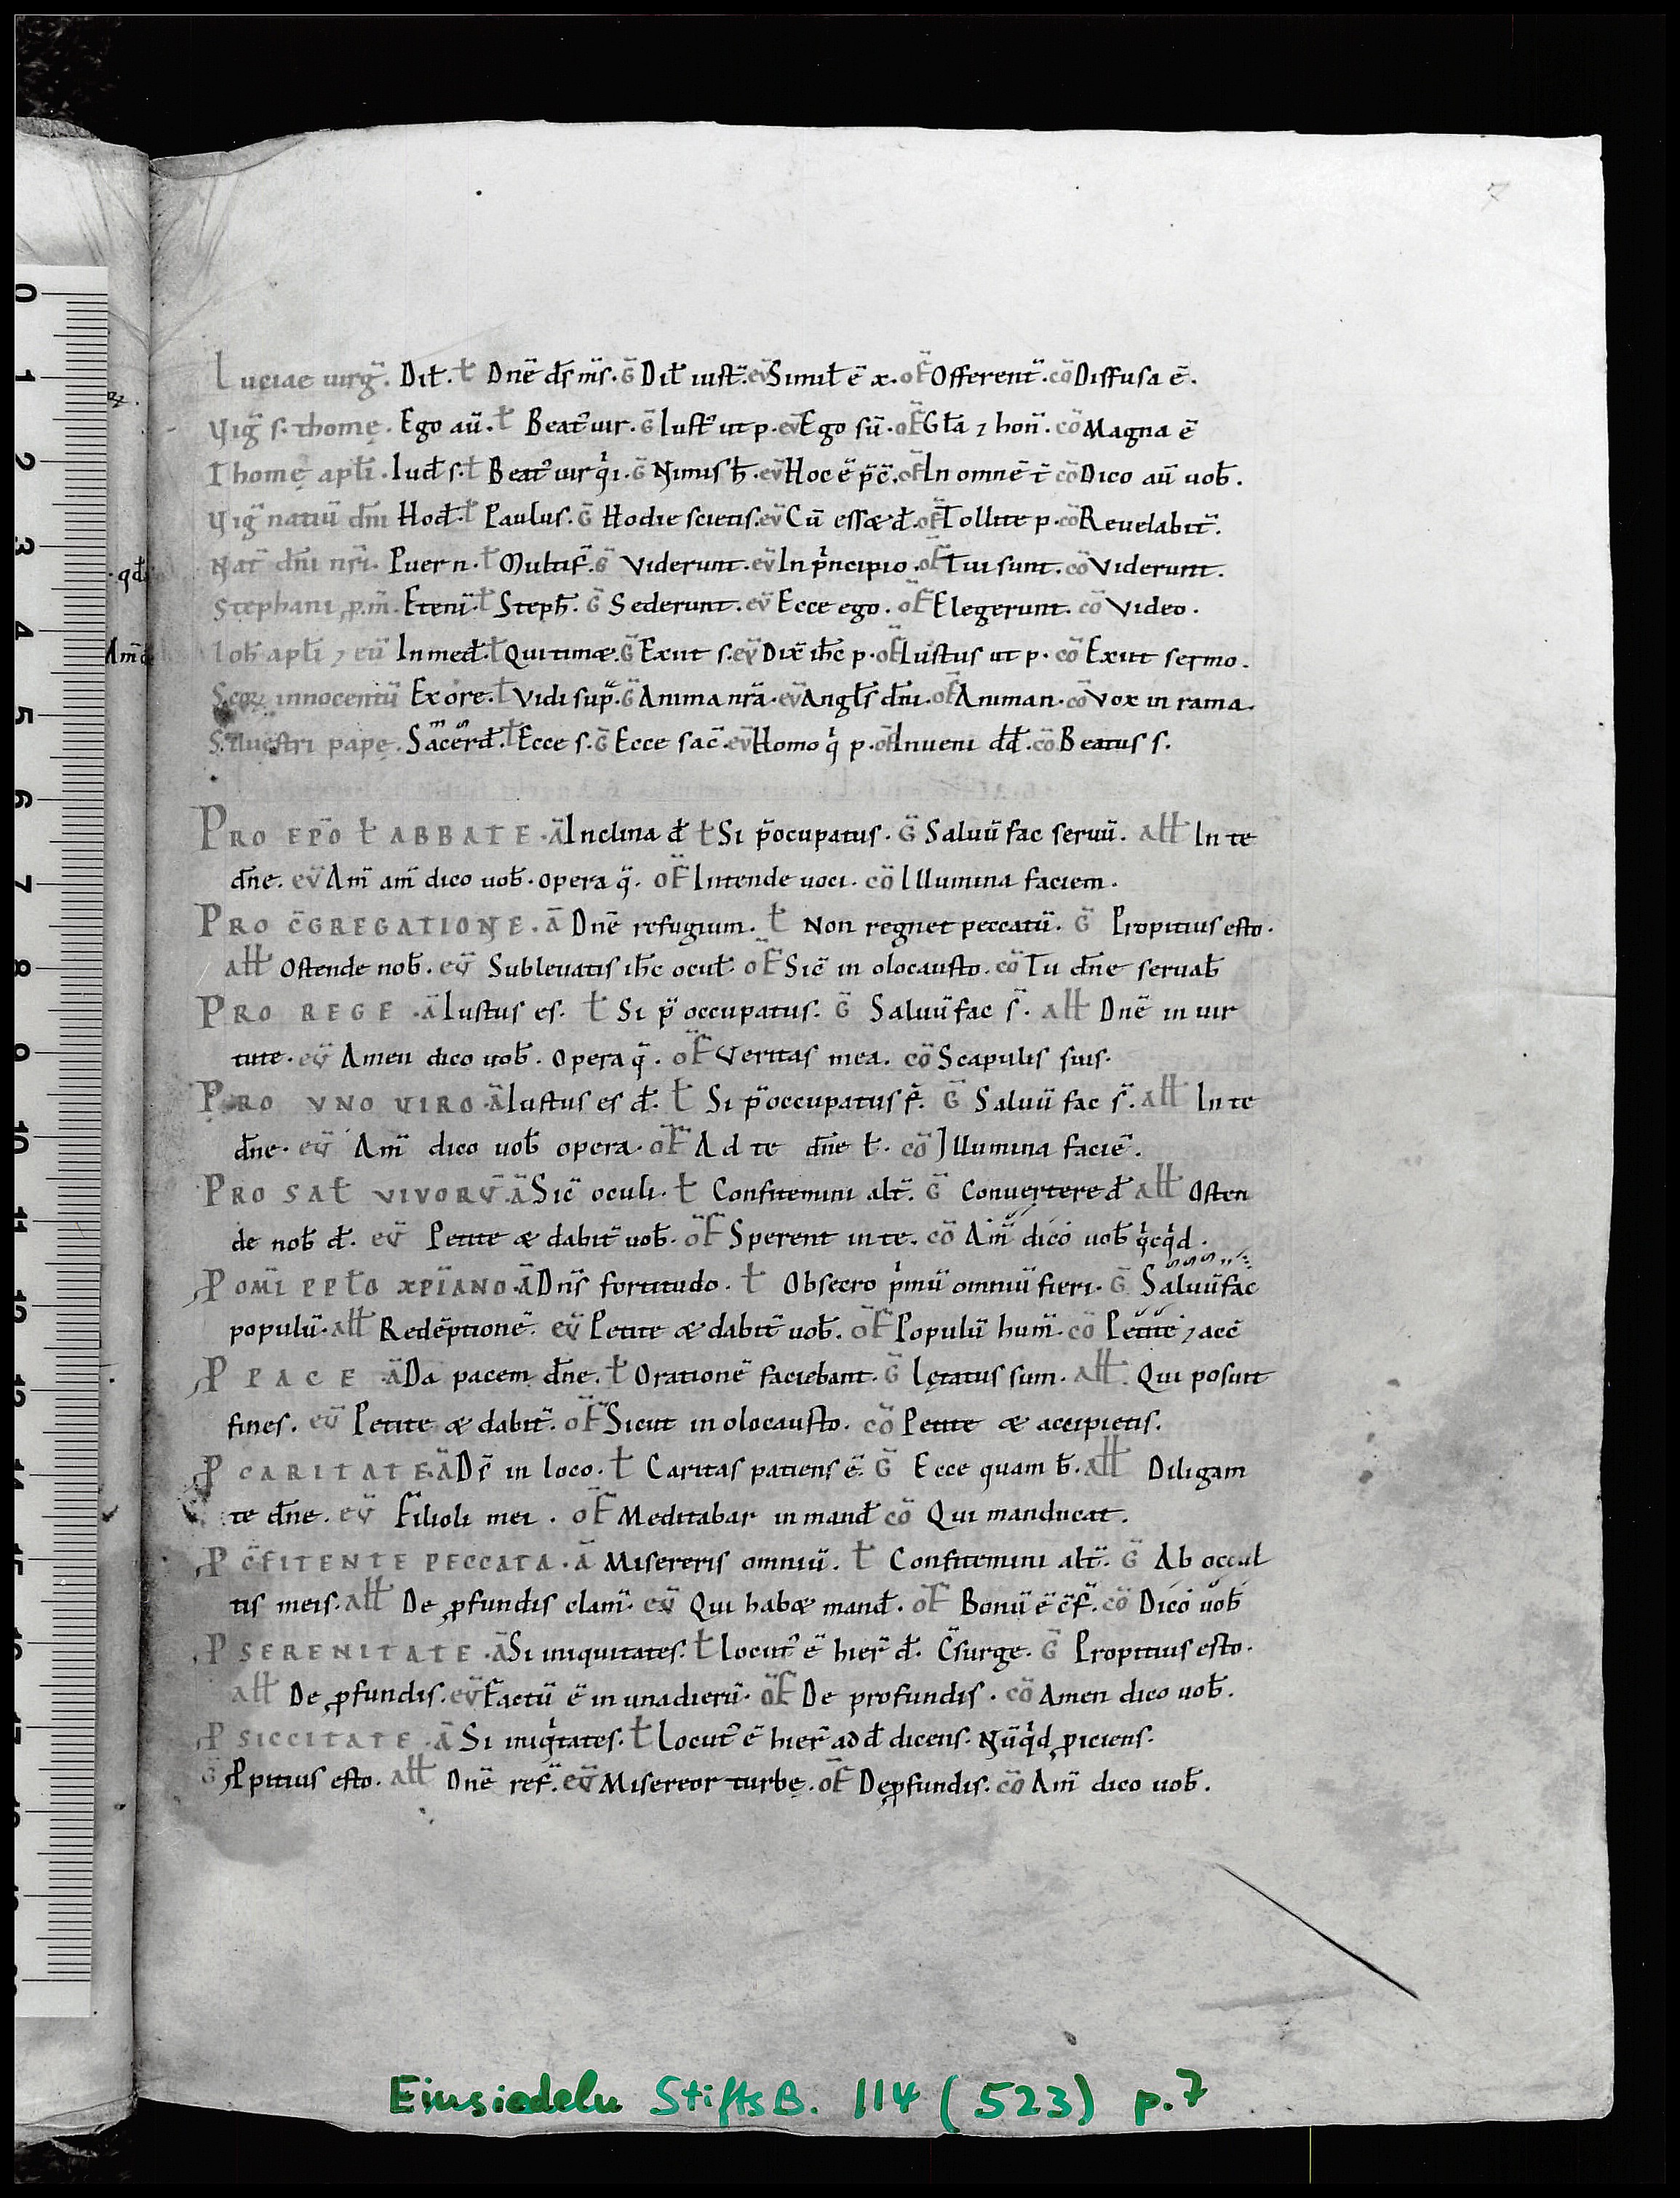 7
Luciae uirg̃. Dil̵. t̵ Dnẽ ds̄ ms̄. G̃ Dil̵ iust̃. eṽ Simil̵ ẽ x. oF̃ Offerent̃. cõ Diffusa ẽ.
Vig̃ s. thomę. Ego aũ. t̵ Beatꝰ uir. G̃ Iustꝰ ut p. eṽ Ego sũ. oF̃ Gl̵a ⁊ hoñ. cõ Magna ẽ
Thomę apl̵i. Iud̵ s. t̵ Beatꝰ uir qͥ i. G̃ Nimis h̵. eṽ Hoc ẽ p̃c̃. oF̃ In omnẽ t̃ cõ Dico aũ uob̵.
Vig̃ natiũ dm̃i Hod̵. t̵ Paulus. G̃ Hodie scietis. eṽ Cũ essæ d̵. oF̃ Tollite p. cõ Reuelabit̃.
Nat̃ dn̄i nr̄i. Puer n. t̵ Multif̃. G̃ Viderunt. eṽ In pͥncipio. oF̃ Tui sunt. cõ Viderunt.
Stephani p. m̃. Etenĩ. t̵ Steph̵. G̃ Sederunt. eṽ Ecce ego. oF̃ Elegerunt. cõ Video.
Ioh̵ apl̵i ⁊ eũ In med̵. t̵ Qui timæ. G̃ Exiit s. eṽ Dix̃ ih̵c p. oF̃ Iustus ut p. cõ Exiit sermo.
Scoꝝ innocentũ Ex ore. t̵ Vidi sup̃. G̃ Anima nr̃a. eṽ Angl̵s dn̄i. oF̃ Animan. cõ Vox in rama.
Siluestri papę. Sacerd̵. t̵ Ecce s. G̃ Ecce sac̃. eṽ Homo qͥ p. oF̃ Inueni dd̵. cõ Beatus s.
PRO EPÕ t̵ ABBATE. ã Inclina d̵ t̵ Si p̃ocupatus. G̃ Saluũ fac seruũ. all̵ In te
dn̄e. eṽ Am̃ am̃ dico uob̵. opera q̃. oF̃ Intende uoci. cõ Illumina faciem.
PRO C̃GREGATIONE. ã Dnẽ refugium. t̵ Non regnet peccatũ. G̃ Propitius esto.
all̵ Ostende nob̵. eṽ Subleuatis ih̵c ocul̵. oF̃ Sic̃ in olocausto. cõ Tu dn̄e seruab̵
PRO REGE. ã Iustus es. t̵ Si p̃ occupatus. G̃ Saluũ fac s̃. all̵ Dnẽ in uir
tute. eṽ Amen dico uob̵. Opera q̃. oF̃ Veritas mea. cõ Scapulis suis.
PRO VNO VIRO. ã Iustus es d̵. t̵ Si p̃occupatus f̃. G̃ Saluũ fac s̃. all̵ In te
dn̄e. eṽ Am̃ dico uob̵ opera. oF̃ Ad te dn̄e l̵. cõ Illumina faciẽ.
PRO SAL̵ VIVORṼ. ã Sic̃ oculi. t̵ Confitemini alt̃. G̃ Conuertere d̵ all̵ Osten
de nob̵ d̵. eṽ Petite æ dabit̃ uob̵. oF̃ Sperent in te. cõ Am̃ dico uob̵ qͥcqͥd.
P̱ OM̃I PPL̵O XPĨANO. ã Dns̃ fortitudo. t̵ Obsecro pͥmũ omniũ fieri. G̃ Saluũ fac
populũ. all̵ Redẽptionẽ. eṽ Petite æ dabit̃ uob̵. oF̃ Populũ hum̃. cõ Petite ⁊ acc̃
P̱ PACE ã Da pacem dn̄e. t̵ Orationẽ faciebant. G̃ Lętatus sum. all̵. Qui posuit
fines. eṽ Petite æ dabit̃. oF̃ Sicut in olocausto. cõ Petite æ accipietis.
P̱ CARITATE. ã Ds̃ in loco. t̵ Caritas patiens ẽ. G̃ Ecce quam b̵. all̵ Diligam
te dn̄e. eṽ Filioli mei. oF̃ Meditabar in mand̵ cõ Qui manducat.
P̱ C̃FITENTE PECCATA. ã Misereris omniũ. t̵ Confitemini alt̃. G̃ Ab occul
tis meis. all̵ De ꝓfundis clam̃. eṽ Qui habæ mand̵. oF̃ Bonũ ẽ c̃f̃. cõ Dico uob̵
P̱ SERENITATE. ã Si iniquitates. t̵ Locutꝰ ẽ hier̃ d̵. C̃surge. G̃ Propitius esto.
all̵ De ꝓfundis. eṽ Factũ ẽ in una dierũ. oF̃ De profundis. cõ Amen dico uob̵.
P̱ SICCITATE. ã Si iniqͥtates. t̵ Locutꝰ ẽ hier̃ ad d̵ dicens. Nũqͥd ꝓiciens.
G̃ P̱pitius esto. all̵ Dnẽ ref̃. eṽ Misereor turbę. oF̃ De ꝓfundis. cõ Am̃ dico uob̵.
Einsiedeln StiftsB. 114 (523) p.7